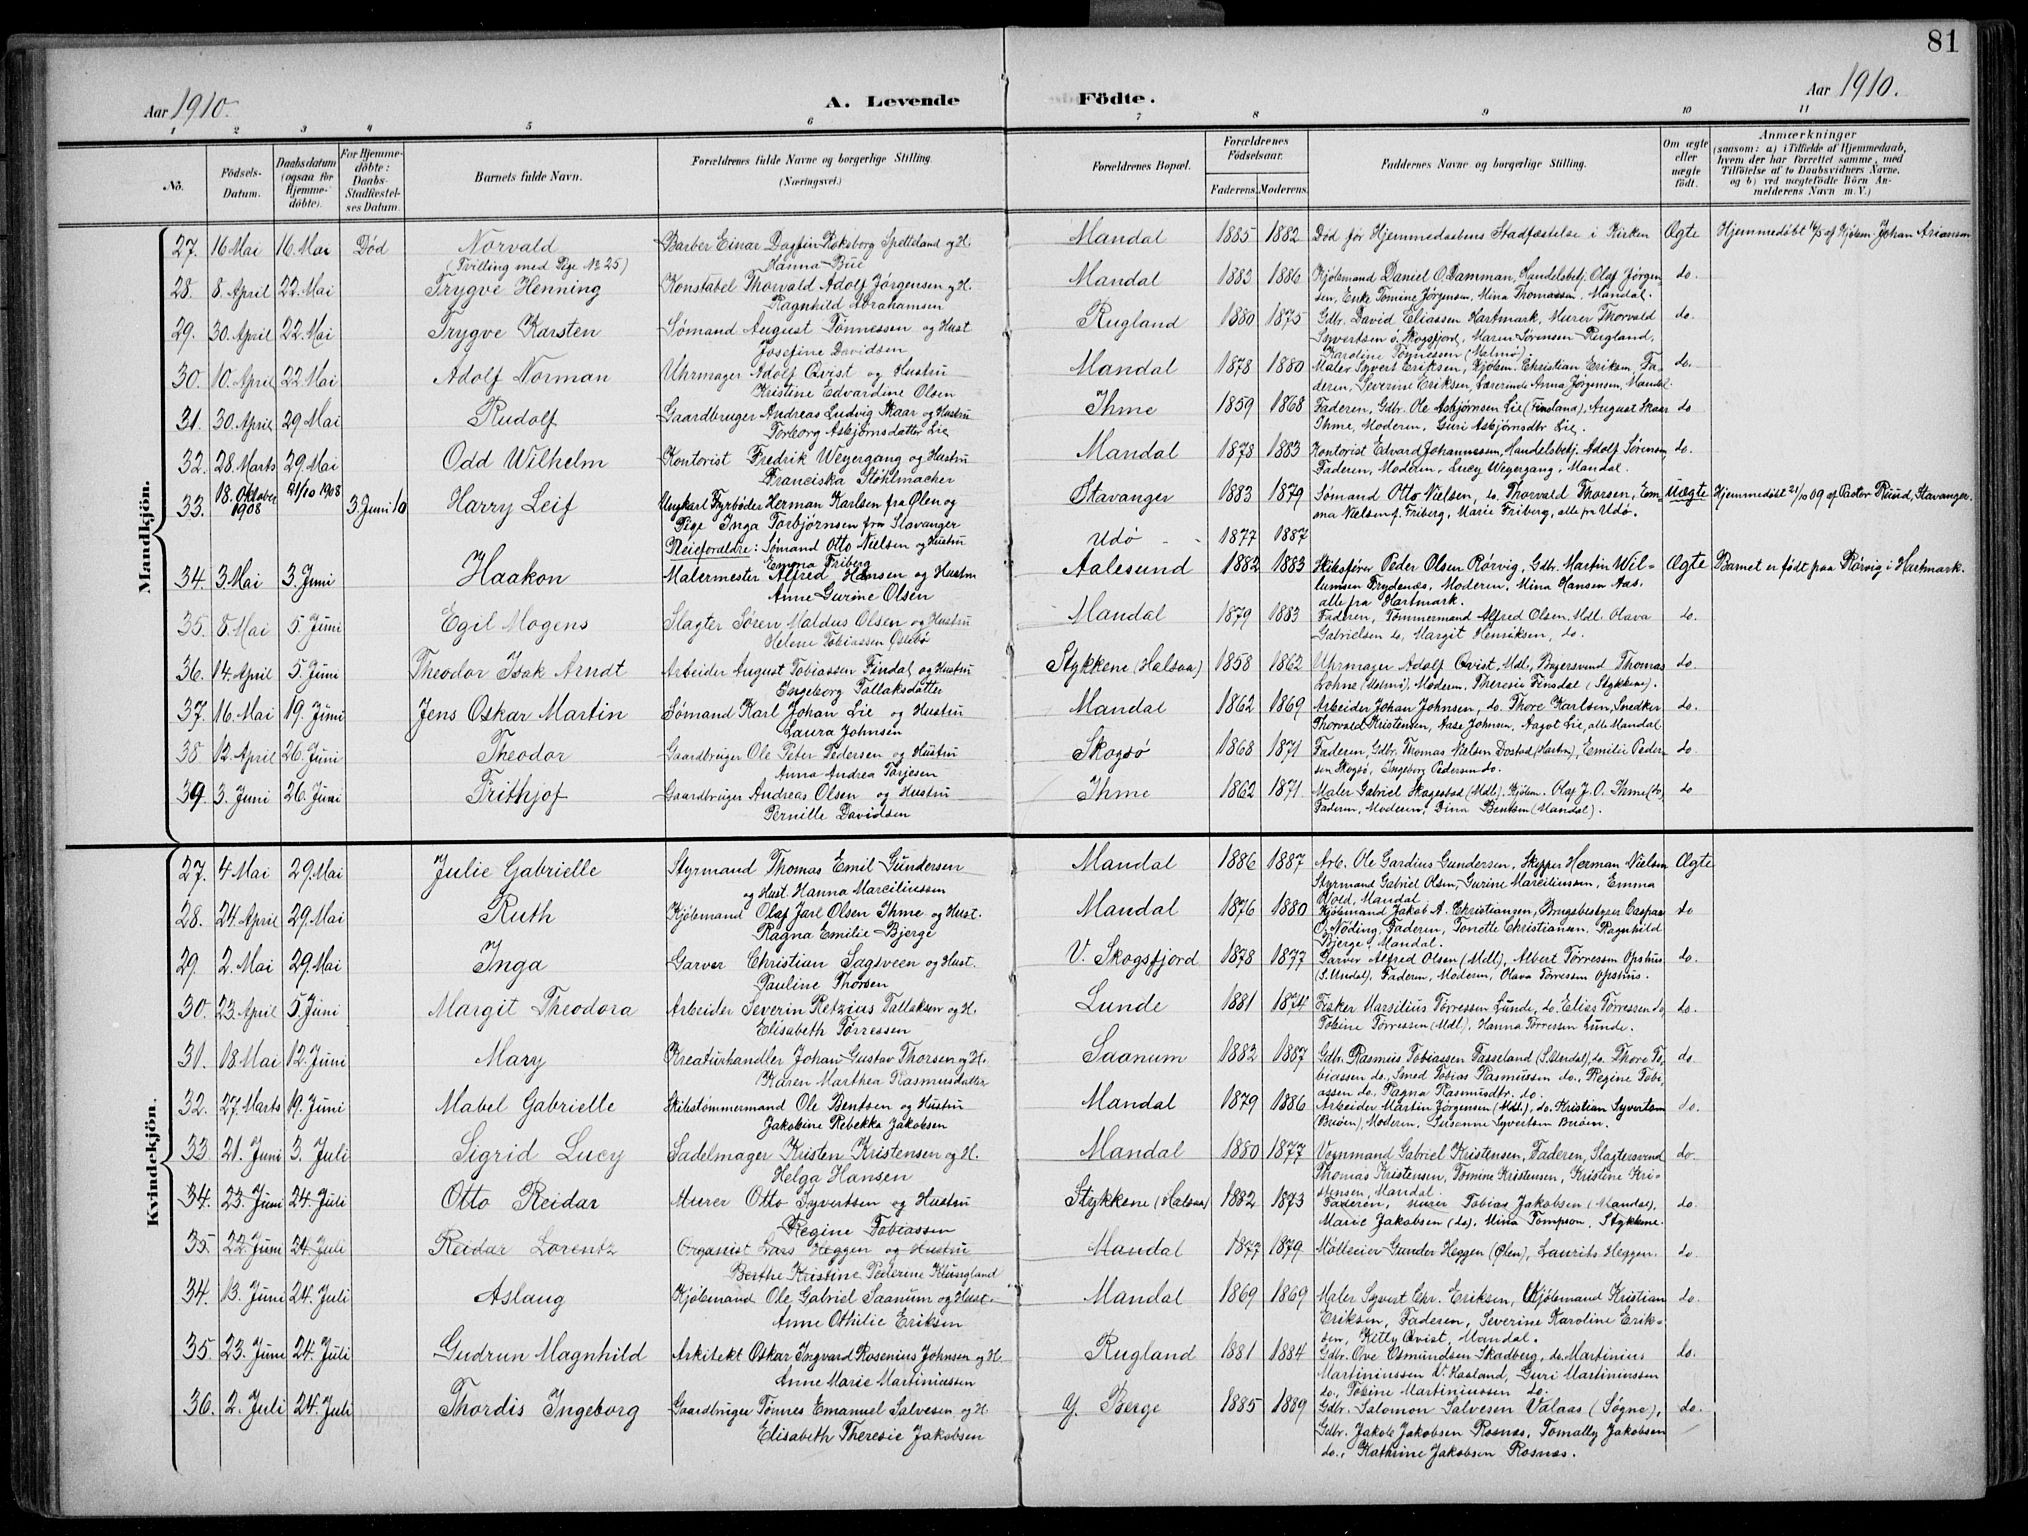 81
Aar 1910. A. Levende Födte. Aar 1910.
1 2 3 4 5 6 7 8 9 10 11
No. Födsels-Datum. Daabsdatum (ogsaa for Hjemme-döbte). For Hjemme-döbte: Daabs-Stadfæstel-ses Datum. Barnets fulde Navn. Forældrenes fulde Navne og borgerlige Stilling. (Næringsvei.) Forældrenes Bopæl. Forældrenes Födselsaar. Faderens. Moderens. Faddernes Navne og borgerlige Stilling. Om ægte eller uægte födt. Anmærkninger (saasom: a) i Tilfælde af Hjemmedaab, hvem der har forrettet samme, med Tilföielse af to Daabsvidners Navne, og b) ved uægtefödte Börn Anmelderens Navn m. V.)
Mandkjön.
27. 16 Mai 16. Mai Död Norvald Barber Einar Dagfin Roksborg Spetteland og H. Mandal 1885 1882 Död før Hjemmedaabens Stadfæstelse i Kirken Ægte Hjemmedöbt 16/5 af Kjölem. Johan Arianson
(Tvilling med Pige No 25) Hanna Bue
28. 8. April 22. Mai Trygve Henning Konstabel Thorvald Adolf Jørgensen og H. Mandal 1883 1886 Kjölemand Daniel O. Damman, Handelsbetj. Olaf Jørgen- do.
Ragnhild Abrahamsen sen, Enke Tomine Jørgensen, Mina Thomassen. Mandal.
29. 30. April 22. Mai Trygve Karsten Sømand August Tønnessen og Hust Rugland 1880 1875 Gdbr. David Eliassen Hartmark, Murer Thorvald do.
Josefine Davidsen Syvertsen ö. Skogsfjord, Maren Sørensen Rugland,
Karoline Tønnesen (Malmö).
30. 10. April 22. Mai Adolf Norman Uhrmager Adolf Qvist og Hustru Mandal 1878 1880 Maler Syvert Eriksen, Kjölem. Christian Eriksen, Fa- do.
Kristine Edvardine Olsen deren, Severine Eriksen, Lærerinde Anna Jørgensen, Mandal
31. 30. April 29 Mai Rudolf Gaardbruger Andreas Ludvig Skaar og Hustru Ihme 1859 1868 Faderen, Gdbr. Ole Asbjørnsen Lie (Finsland), August Skaar do
Torborg Asbjørnsdatter Lie Ihme, Moderen, Guri Asbjørnsdtr Lie.
32. 28. Marts 29. Mai Odd Wilhelm Kontorist Fredrik Weyergang og Hustru Mandal 1878 1883 Kontorist Edvard Johannessen, Handelsbetj. Adolf Sörensen, do.
Franciska Stöhlmacher Faderen, Moderen, Lucy Weyergang, Mandal.
33. 18. Oktober 1908 21/10 1908 3 Juni 10 Harry Leif Ungkarl Fyrbøder Herman Karlsen fra Ølen og Stavanger 1883 1879 Sømand Otto Nielsen, do. Thorvald Thorsen, Em- Uægte Hjemmedöbt 21/10 09 af Pastor Ruud, Stavanger.
Pige Inga Torbjørnsen fra Stavanger ma Nielsen f. Friberg, Marie Friberg, alle fra Udö.
Pleieforældre: Sømand Otto Nielsen og Hustru Udö 1877 1887
Emma Friberg
34. 3. Mai 3. Juni Haakon Malermester Alfred Hansen og Hustru Aalesund 1882 1883 Skibsfører Peder Olsen Rörvig, Gdbr. Martin Wil- Ægte Barnet er født paa Rörvig i Hartmark.
Anne Gurine Olsen lumsen Frydenæs, Moderen, Mina Hansen Aas.
alle fra Hartmark.
35. 8. Mai 5. Juni Egil Mogens Slagter Sören Maldus Olsen og Hustru Mandal 1879 1883 Faderen, Tømmermand Alfred Olsen. Mdl. Olava do.
Helene Tobiassen Gabrielsen do, Margit Henriksen, do.
36. 14. April 5. Juni Theodor Isak Arndt Arbeider August Tobiassen Findal og Hustru Stykkene (Halsaa) 1858 1862 Uhrmager Adolf Qvist, Mdl., Bagersvend Thomas do.
Ingeborg Tallaksdatter Lohne (Malmö), Moderen, Theresie Finsdal (Stykkene).
37. 16. Mai 19. Juni Jens Oskar Martin Sømand Karl Johan Lie og Hustru Mandal 1862 1869 Arbeider Johan Johnsen, do. Thore Karlsen, Snedker do.
Laura Johnsen Thorvald Kristensen, Aase Johnsen, Aagot Lie, alle Mandal
38 12. April 26. Juni Theodor Gaardbruger Ole Peter Pedersen og Hustru Skogsö 1868 1871 Faderen, Gdbr. Thomas Nielsen Dostad (Hartm), Emilie Peder- do
Anna Andrea Torjesen sen Skogsö, Ingeborg Pedersen do.
39. 3. Juni 26. Juni Frithjof Gaardbruger Andreas Olsen og Hustru Ihme 1862 1871 Maler Gabriel Skagestad (Mdl). Kjölem. Olaf J. O. Ihme (do), do
Pernille Davidsen Faderen, Moderen, Dina Bentsen (Mandal).
Kvindekjön.
27. 4 Mai 29. Mai Julie Gabrielle Styrmand Thomas Emil Gundersen Mandal 1886 1887 Arb. Ole Gardius Gundersen, Skipper Herman Nielsen Ægte
og Hust. Hanna Marciliussen Styrmand Gabriel Olsen, Gurine Marciliussen, Emma
Wold, Mandal
28. 24. April 29. Mai Ruth Kjölemand Olaf Jarl Olsen Ihme og Hust. Mandal 1876 1880 Kjölemand Jakob A. Christiansen, Brugsbestyrer Caspar do
Ragna Emilie Bjerge O. Nöding, Faderen, Tonette Christiansen. Ragnhild
Bjerge, Mandal.
29. 2. Mai 29. Mai Inga Garver Christian Sagsveen og Hust. V. Skogsfjord 1878 1877 Garver Alfred Olsen (Mdl), Albert Torressen Opshus do.
Pauline Thorsen (S. Undal), Faderen, Moderen, Olava Torressen Opshus.
30. 23. April 5. Juni Margit Theodora Arbeider Severin Retzius Tallaksen og H. Lunde 1881 1874 Fisker Marsilius Torressen Lunde, do. Elias Torressen do, do.
Elisabeth Torressen Tobine Torressen (Mdl). Hanna Torressen Lunde.
31. 18. Mai 12. Juni Mary Kreaturhandler Johan Gustav Thorsen og H. Saanum 1882 1887 Gdbr. Rasmus Tobiassen Tasseland (S. Undal), do. Thore To- do.
Karen Marthea Rasmusdatter biassen do., Smed Tobias Rasmussen do., Regine Tobi-
assen do. Ragna Rasmusdtr. do.
32. 27. Marts 19. Juni Mabel Gabrielle Skibstømmermand Ole Bentsen og Hustru Mandal 1879 1886 Arbeider Martin Jørgensen (Mdl), do. Kristian Syvertsen do.
Jakobine Rebekka Jakobsen (Broen), Moderen. Susanne Syvertsen Broen.
33 21. Juni 3. Juli Sigrid Lucy Sadelmager Kristen Kristensen og H. Mandal 1880 1877 Vognmand Gabriel Kristensen, Faderen, Slagtersvend do
Helga Hansen Thomas Kristensen, Tomine Kristensen, Kristine Kri-
stensen, Mandal.
34. 23. Juni 24. Juli Otto Reidar Murer Otto Syvertsen og Hustru Stykkene (Halsaa) 1882 1873 Faderen, Murer Tobias Jakobsen (Mandal), do.
Regine Tobiassen Marie Jakobsen (do), Mina Tompson, Stykkene.
35. 22. Juni 24. Juli Reidar Lorentz Organist Lars Heggen og Hustru Mandal 1877 1879 Mølleeier Gunder Heggen (Ølen), Laurits Heggen. do.
Berthe Kristine Pederine Klungland
34. 13. Juni 24. Juli Aslaug Kjölemand Ole Gabriel Saanum og Hust. Mandal 1869 1869 Maler Syvert Chr. Eriksen, Kjölemand Kristian do.
Anne Othilie Eriksen Eriksen, Faderen, Severine Karoline Erik-
sen, Kitty Qvist, Mandal.
35. 23. Juni 24. Juli Gudrun Magnhild Arkitekt Oskar Ingvard Rosenius Johnsen og H. Rugland 1881 1884 Gdbr. Ove Osmundsen Skadberg, do. Martinius do.
Anne Marie Martiniussen Martiniussen V. Haaland, Guri Martiniussen
do., Tobine Martiniussen do.
36. 2. Juli 24. Juli Thordis Ingeborg Gaardbruger Tønnes Emanuel Salvesen og H. Y. Berge 1885 1889 Gdbr. Salomon Salvesen Valaas (Søgne), do.
Elisabeth Theresie Jakobsen Gdbr. Jakob Jakobsen Rosnæs, Tomally Jakobsen
do., Kathrine Jakobsen Rosnæs.